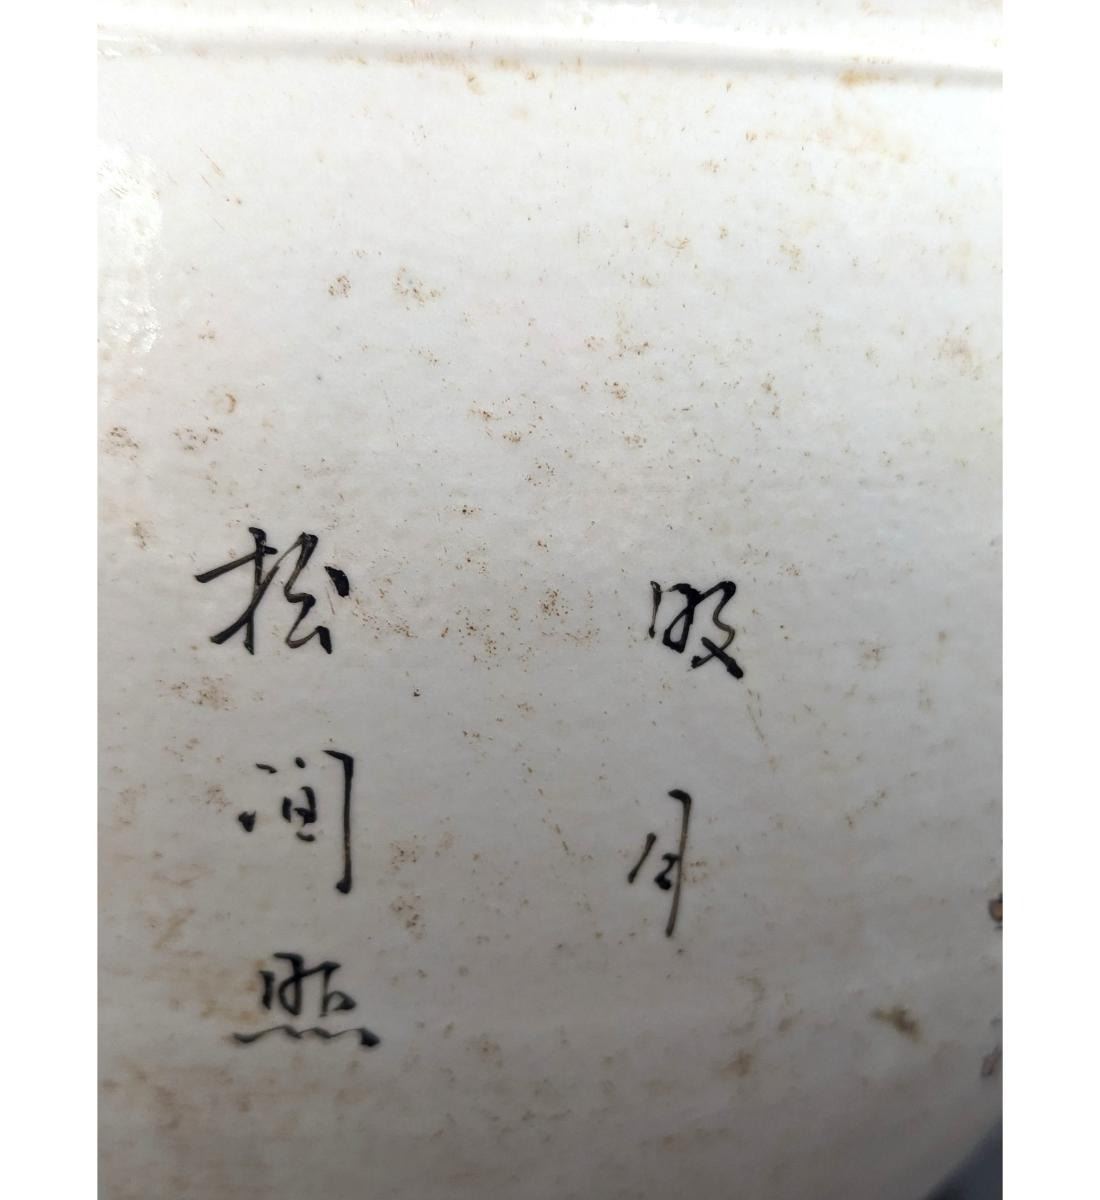 明月
松間照